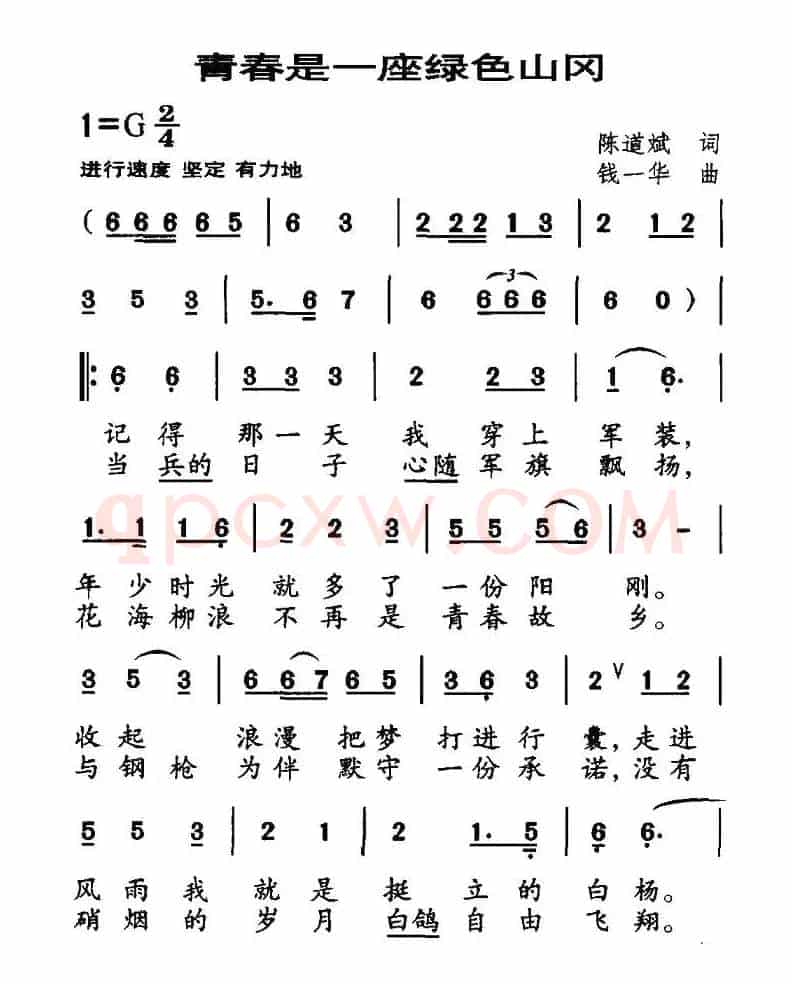 青春是一座绿色山冈
1=G 2/4
陈道斌 词
进行速度 坚定 有力地
钱一华 曲
( 6 6 6 6 5 | 6 3 | 2 2 2 1 3 | 2 1 2 |
3 5 3 | 5· 6 7 | 6 6 6 6 | 6 0 ) |
3
‖: 6 6 | 3 3 3 | 2 2 3 | 1 6· |
记得 那一天 我 穿上 军装,
当兵的 日子 心随军旗 飘扬,
1· 1 1 6 | 2 2 3 | 5 5 5 6 | 3 - |
年少时光 就多了 一份阳 刚。
花海柳浪 不再是 青春故 乡。
qpcxw.COM
3 5 3 | 6 6 7 6 5 | 3 6 3 | 2 ∨ 1 2 |
收起 浪漫把梦 打进行 囊,走进
与钢枪 为伴默守 一份承 诺,没有
5 5 3 | 2 1 | 2 1· 5 | 6 6· |
风雨我 就是 挺立的 白杨。
硝烟的 岁月 白鸽自由 飞翔。